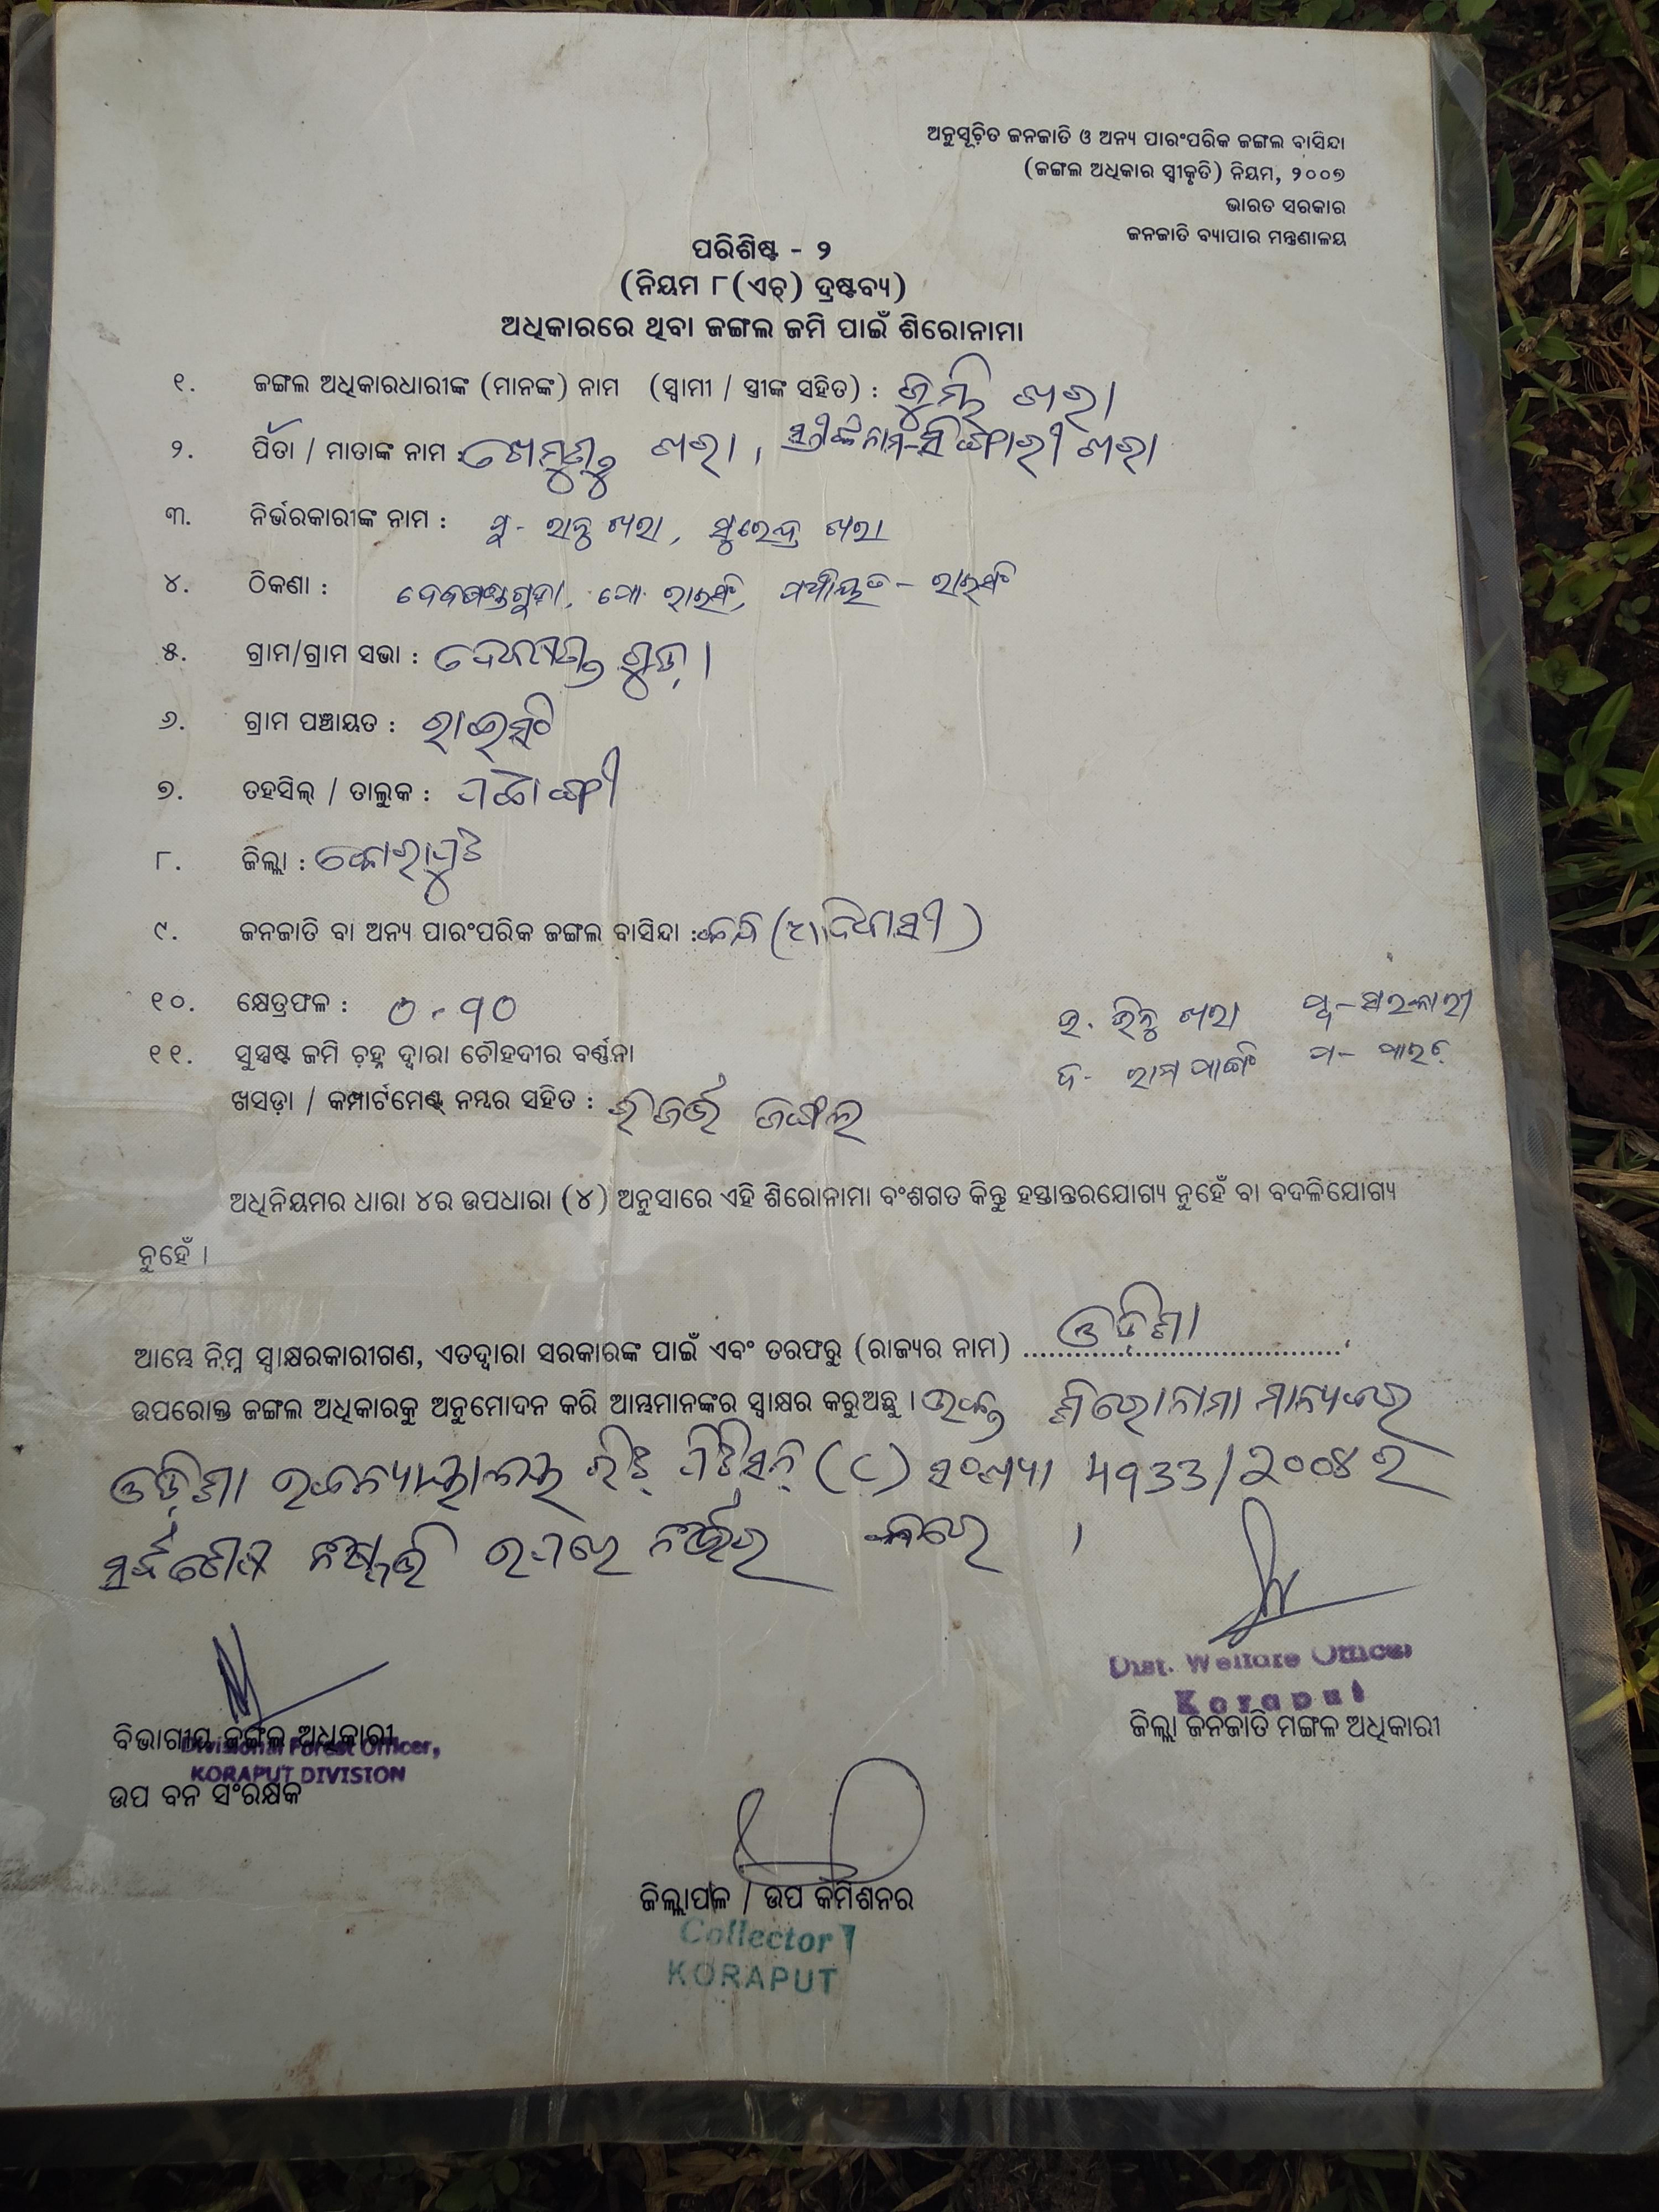 ଅନୁସୂଚିତ ଜନଜାତି ଓ ଅନ୍ୟ ପାରଂପରିକ ଜଙ୍ଗଲ ବାସିନ୍ଦା
(ଜଙ୍ଗଲ ଅଧିକାର ସ୍ୱୀକୃତି) ନିୟମ, ୨୦୦୭
ଭାରତ ସରକାର
ଜନଜାତି ବ୍ୟାପାର ମନ୍ତ୍ରଣାଳୟ
ପରିଶିଷ୍ଟ - ୨
(ନିୟମ ୮(ଏଚ୍) ଦ୍ରଷ୍ଟବ୍ୟ)
ଅଧିକାରରେ ଥିବା ଜଙ୍ଗଲ ଜମି ପାଇଁ ଶିରୋନାମା
୧. ଜଙ୍ଗଲ ଅଧିକାରଧାରୀଙ୍କ (ମାନଙ୍କ) ନାମ (ସ୍ୱାମୀ / ସ୍ତ୍ରୀଙ୍କ ସହିତ) : ଖରା
୨. ପିତା / ମାତାଙ୍କ ନାମ : ଖରା, ସ୍ତ୍ରୀଙ୍କ ନାମ- ଖରା
୩. ନିର୍ଭରକାରୀଙ୍କ ନାମ : ପୁ- ଖରା, ସୁରେନ୍ଦ୍ର ଖରା
୪. ଠିକଣା :
୫. ଗ୍ରାମ/ଗ୍ରାମ ସଭା :
୬. ଗ୍ରାମ ପଞ୍ଚାୟତ :
୭. ତହସିଲ୍ / ତାଲୁକ : ପଟାଙ୍ଗୀ
୮. ଜିଲ୍ଲା : କୋରାପୁଟ
୯. ଜନଜାତି ବା ଅନ୍ୟ ପାରଂପରିକ ଜଙ୍ଗଲ ବାସିନ୍ଦା : (ଆଦିବାସୀ)
୧୦. କ୍ଷେତ୍ରଫଳ : ୦.୩୦
ଉ. ଖରା ପୂ-ସରକାରୀ
୧୧. ସୁସ୍ପଷ୍ଟ ଜମି ଚିହ୍ନ ଦ୍ୱାରା ଚୌହଦୀର ବର୍ଣ୍ଣନା
ଦ- ରାମ ପ-
ଖସଡ଼ା / କମ୍ପାର୍ଟମେଣ୍ଟ୍ ନମ୍ବର ସହିତ : ରିଜର୍ଭ ଜଙ୍ଗଲ
ଅଧିନିୟମର ଧାରା ୪ର ଉପଧାରା (୪) ଅନୁସାରେ ଏହି ଶିରୋନାମା ବଂଶଗତ କିନ୍ତୁ ହସ୍ତାନ୍ତରଯୋଗ୍ୟ ନୁହେଁ ବା ବଦଳିଯୋଗ୍ୟ
ନୁହେଁ ।
ଆମ୍ଭେ ନିମ୍ନ ସ୍ୱାକ୍ଷରକାରୀଗଣ, ଏତଦ୍ଵାରା ସରକାରଙ୍କ ପାଇଁ ଏବଂ ତରଫରୁ (ରାଜ୍ୟର ନାମ) ଓଡ଼ିଶା
ଉପରୋକ୍ତ ଜଙ୍ଗଲ ଅଧିକାରକୁ ଅନୁମୋଦନ କରି ଆମ୍ଭମାନଙ୍କର ସ୍ୱାକ୍ଷର କରୁଅଛୁ । ଉକ୍ତ ଶିରୋନାମା ମାନ୍ୟବର
ଓଡ଼ିଶା ଉଚ୍ଚନ୍ୟାୟାଳୟ ରିଟ୍ ପିଟିସନ୍ (C) ସଂଖ୍ୟା ୪୯୩୩/୨୦୦୮ ର
ସର୍ବଶେଷ ନିଷ୍ପତ୍ତି ଉପରେ ନିର୍ଭର କରେ ।
Dist. Welfare Officer
Koraput
ଜିଲ୍ଲା ଜନଜାତି ମଙ୍ଗଳ ଅଧିକାରୀ
ବିଭାଗୀୟ ଜଙ୍ଗଲ ଅଧିକାରୀ
Divisional Forest Officer,
KORAPUT DIVISION
ଉପ ବନ ସଂରକ୍ଷକ
ଜିଲ୍ଲାପାଳ / ଉପ କମିଶନର
Collector
KORAPUT